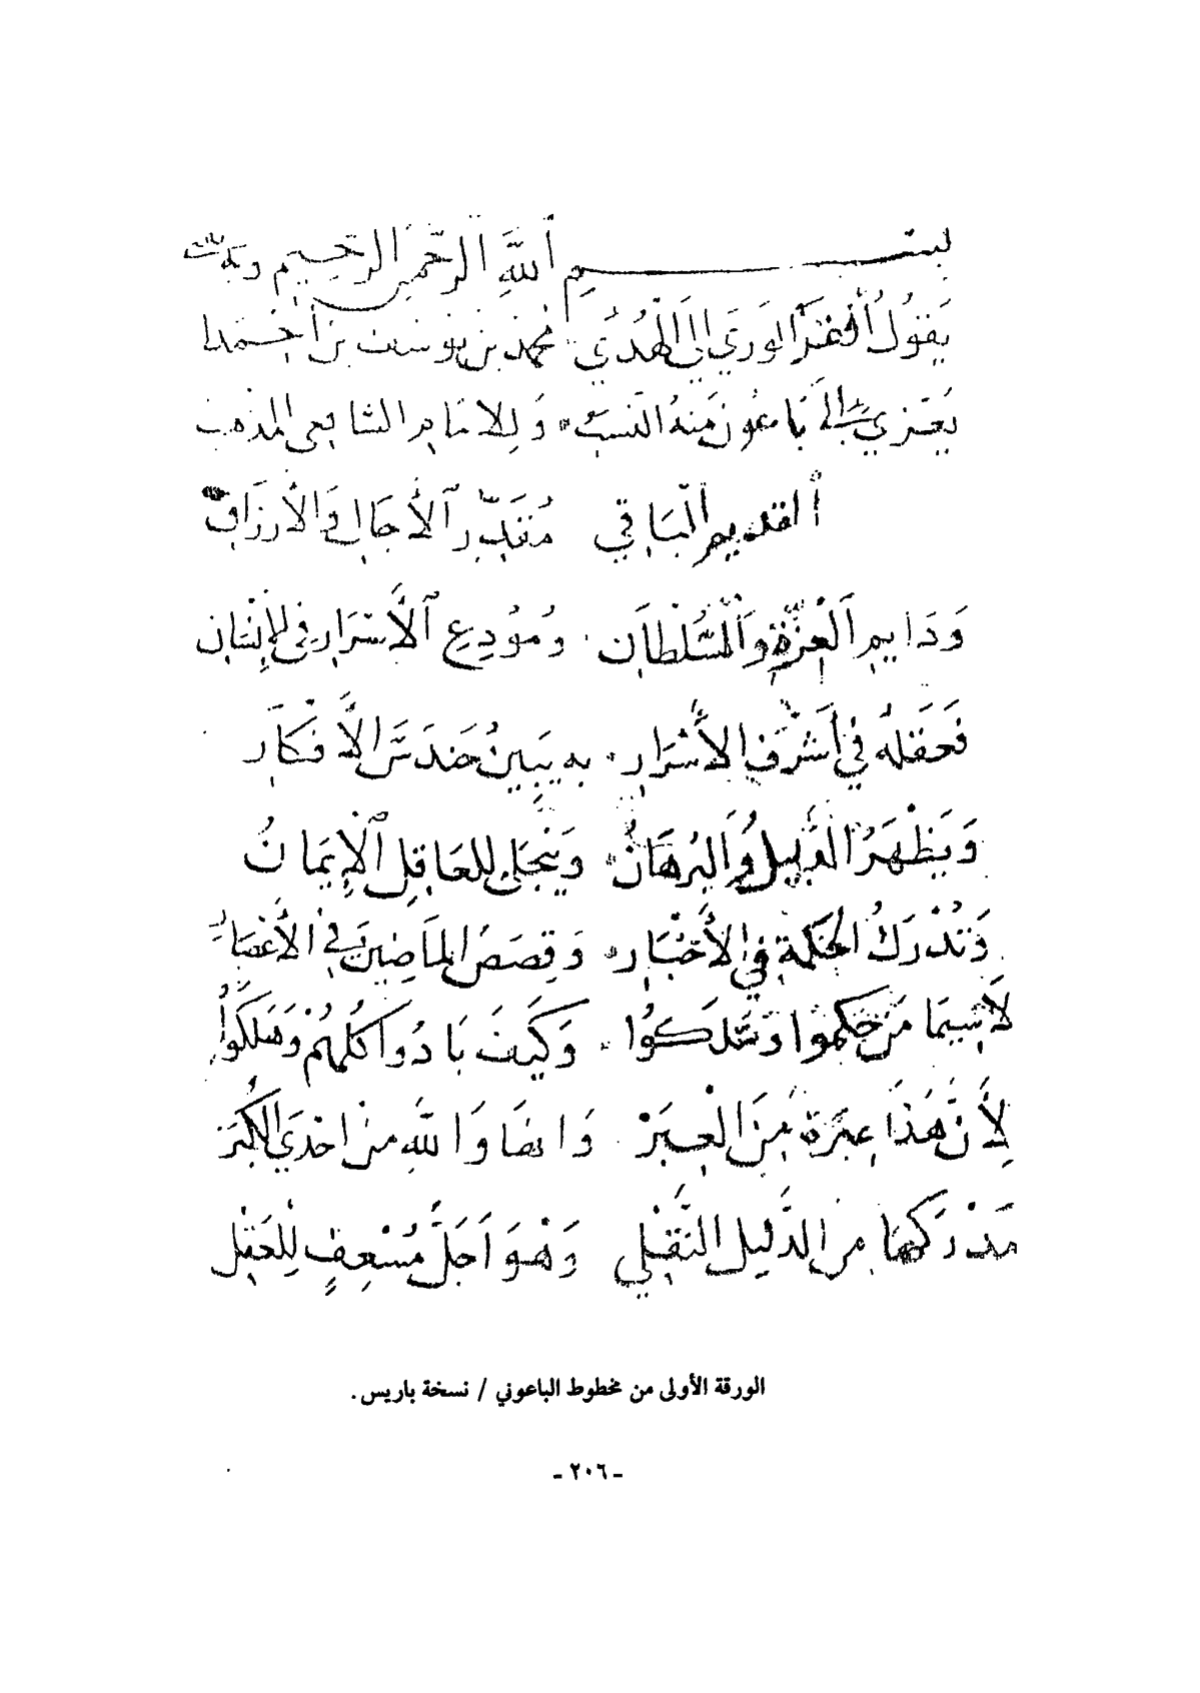 بسم الله الرحمن الرحيم وبه
يَقُولُ أَفْقَرُ الوَرَي إِلَى الهُدَي محمد بن يوسف بن أحمدا
يَعْتزي إلى بَاعُون مِنهُ النسَبُ وَللامَامِ الشافعي المذهب
القديم البَاقي مُقَدِّر اَلأجَال وَالأرزَاق
وَدَايم اَلْعِزَّةِ وَالسُّلْطَان وَمُودِعِ اَلأَسْرَارِ فى الإنْسَان
فَحَقلهُ في أَشْرَف الأَسْرَار به يَبِينُ حَندَسَ الاَفكَار
وَيَظْهَرُ الدَّلِيلُ وَالبُرهَانُ وَيَنجَلى للعَاقِلِ اَلإِيمَانُ
وَتُدْرَكُ الحِكمَة في الأَخْبَار وَقِصَصُ المَاضِينَ في الأَعْصَار
لاَسِيمَا مَن حَكمُوا وَمَلَكُوا وَكَيفَ بَادُوا كُلهُمْ وَهَلَكُوا
لِأَنَّ هَذَا عِبْرَة مِنَ الْعِبَرْ وَانهَا وَاللهِ مِن احْدَي الكُبَرْ
مَدْرَكهَا مِن الدَّلِيل النَّقْلِي وَهْوَ اَجَلُّ مُسْعِفٍ لِلعَقْل
الورقة الأولى من مخطوط الباعوني / نسخة باريس.
- ٢٠٦ -